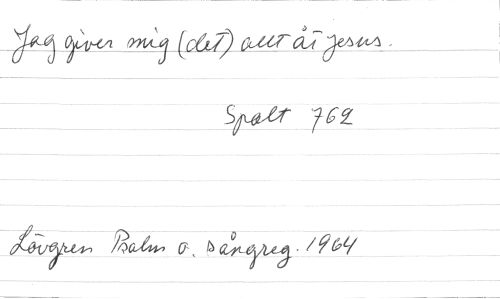 Jag giver mig (det) allt åt Jesus.
Spalt 762
Lövgren Psalm o. sångreg. 1964